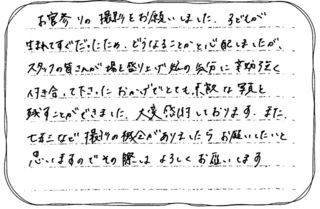 お宮参りの撮影をお願いしました。子どもが
生まれてすぐだったため、どうなることかと心配しましたが、
スタッフの皆さんが場を盛り上げ 私の気分に辛抱強く
付き合って下さった おかげでとても素敵な写真を
残すことができました。大変感謝しております。また、
七五三など撮影の機会がありましたらお願いしたいと
思いますのでその際は よろしくお願いします